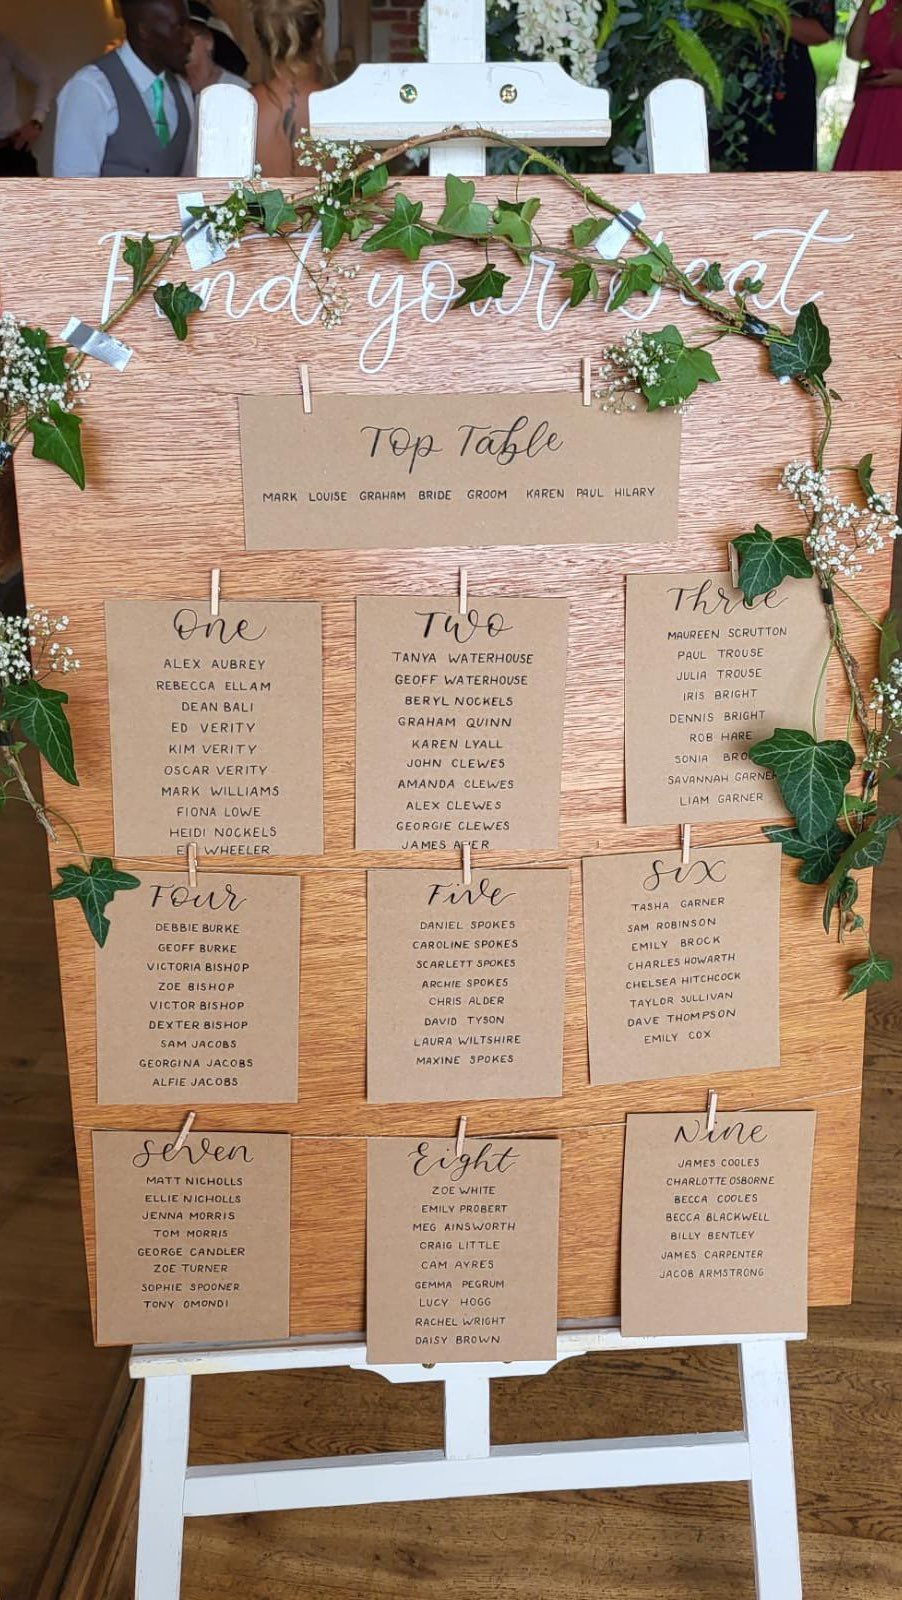 Find your Seat
Top Table
MARK LOUISE GRAHAM BRIDE GROOM KAREN PAUL HILARY
One
ALEX AUBREY
REBECCA ELLAM
DEAN BALI
ED VERITY
KIM VERITY
OSCAR VERITY
MARK WILLIAMS
FIONA LOWE
HEIDI NOCKELS
WHEELER
Two
TANYA WATERHOUSE
GEOFF WATERHOUSE
BERYL NOCKELS
GRAHAM QUINN
KAREN LYALL
JOHN CLEWES
AMANDA CLEWES
ALEX CLEWES
GEORGIE CLEWES
JAMES
Three
MAUREEN SCRUTTON
PAUL TROUSE
JULIA TROUSE
IRIS BRIGHT
DENNIS BRIGHT
ROB HARE
SONIA
SAVANNAH GARNER
LIAM GARNER
Four
DEBBIE BURKE
GEOFF BURKE
VICTORIA BISHOP
ZOE BISHOP
VICTOR BISHOP
DEXTER BISHOP
SAM JACOBS
GEORGINA JACOBS
ALFIE JACOBS
Five
DANIEL SPOKES
CAROLINE SPOKES
SCARLETT SPOKES
ARCHIE SPOKES
CHRIS ALDER
DAVID TYSON
LAURA WILTSHIRE
MAXINE SPOKES
Six
TASHA GARNER
SAM ROBINSON
EMILY BROCK
CHARLES HOWARTH
CHELSEA HITCHCOCK
TAYLOR SULLIVAN
DAVE THOMPSON
EMILY COX
Seven
MATT NICHOLLS
ELLIE NICHOLLS
JENNA MORRIS
TOM MORRIS
GEORGE CANDLER
ZOE TURNER
SOPHIE SPOONER
TONY OMONDI
Eight
ZOE WHITE
EMILY PROBERT
MEG AINSWORTH
CRAIG LITTLE
CAM AYRES
GEMMA PEGRUM
LUCY HOGG
RACHEL WRIGHT
DAISY BROWN
Nine
JAMES COOLES
CHARLOTTE OSBORNE
BECCA COOLES
BECCA BLACKWELL
BILLY BENTLEY
JAMES CARPENTER
JACOB ARMSTRONG